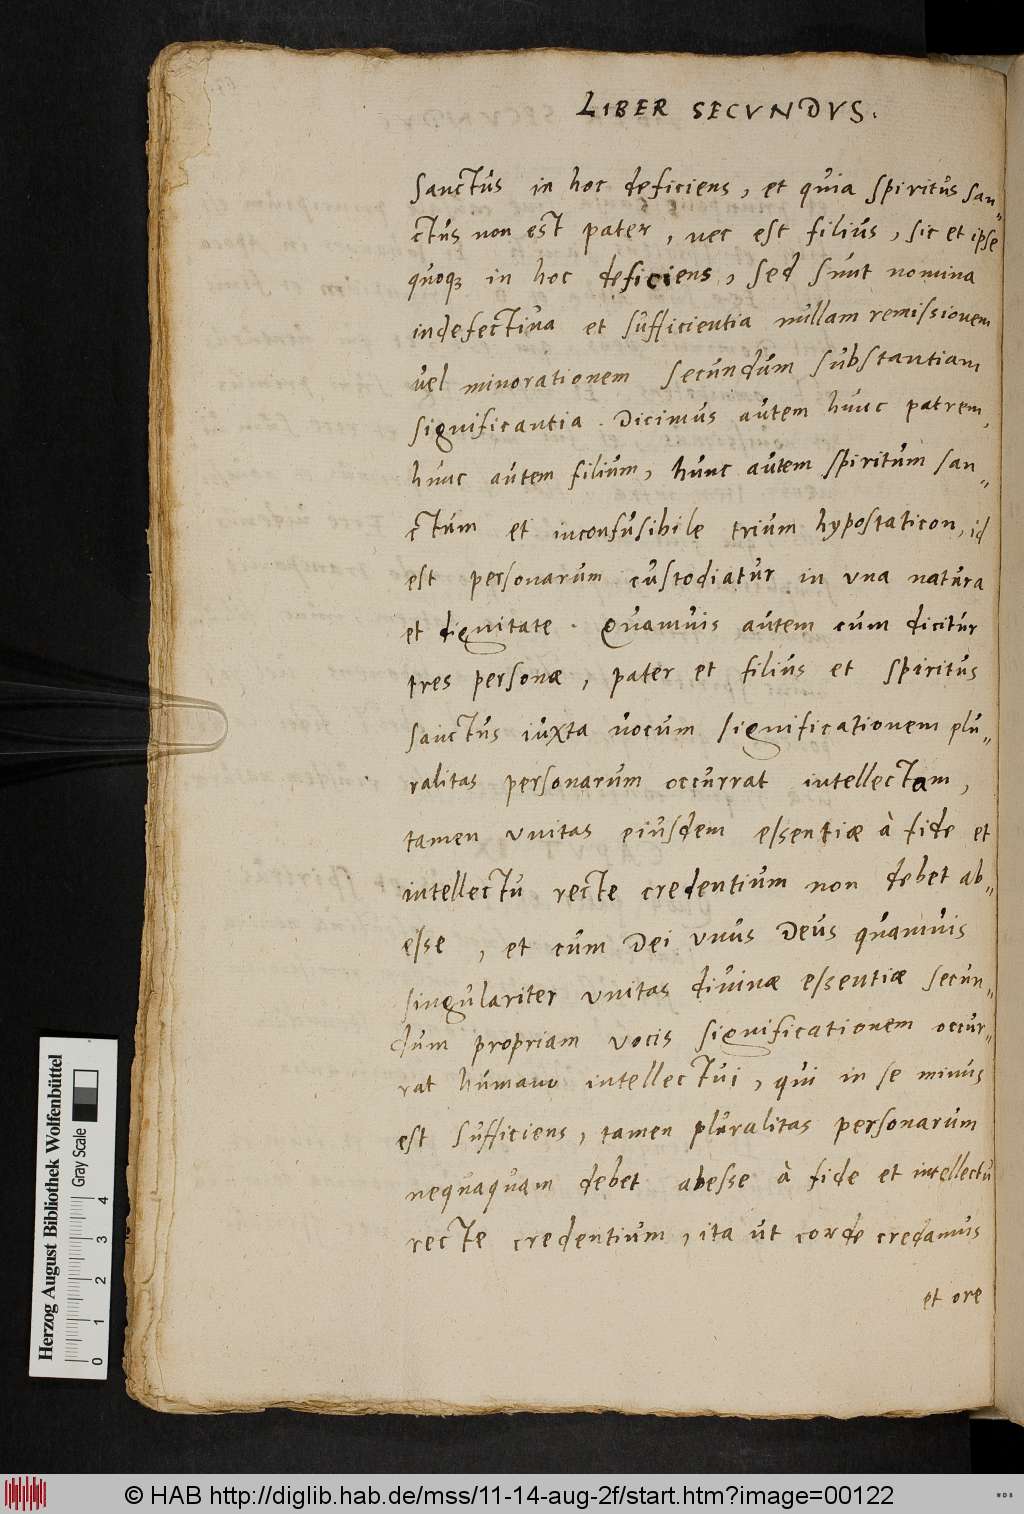 LIBER SECVNDVS.
sanctus in hoc deficiens, et quia spiritus san„
ctus non est pater, nec est filius, sic et ipse
quoqꝫ in hoc deficiens, sed sunt nomina
indefectiua et sufficientia nullam remissionem
uel minorationem secundum substantiam
significantia. Dicimus autem hunc patrem,
hunc autem filium, hunc autem spiritum san„
ctum et inconfusibile trium hypostaticon, id
est personarum custodiatur in vna natura
et dignitate. Quamuis autem cum dicitur
tres personæ, pater et filius et spiritus
sanctus iuxta uocum significationem plu„
ralitas personarum occurrat intellectam,
tamen vnitas eiusdem essentiæ à fide et
intellectu recte credentium non debet ab„
esse, et cum Dei vnus Deus quamuis
singulariter vnitas diuinæ essentiæ secun„
dum propriam vocis significationem occur„
rat humano intellectui, qui in se minus
est sufficiens, tamen pluralitas personarum
nequaquam debet abesse à fide et intellectu
recte credentium, ita ut corde credamus
et ore
Herzog August Bibliothek Wolfenbüttel
Gray Scale
0 1 2 3 4
© HAB http://diglib.hab.de/mss/11-14-aug-2f/start.htm?image=00122